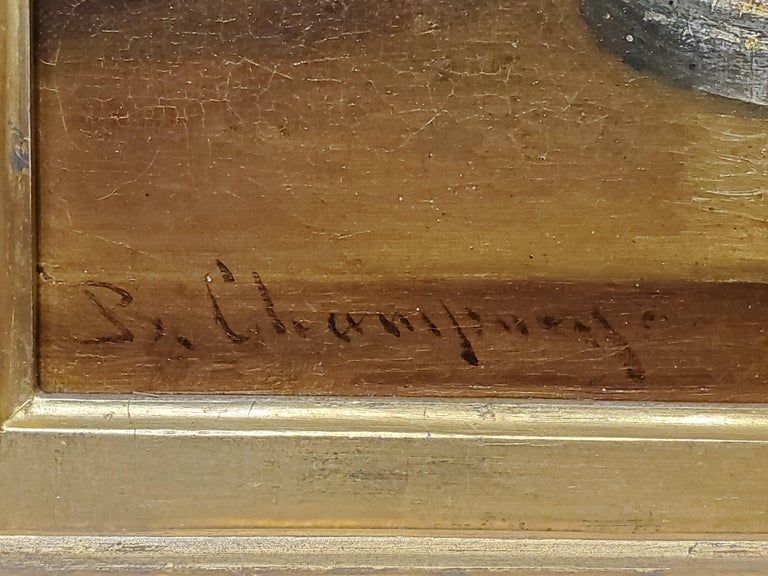 Bx. Champney.